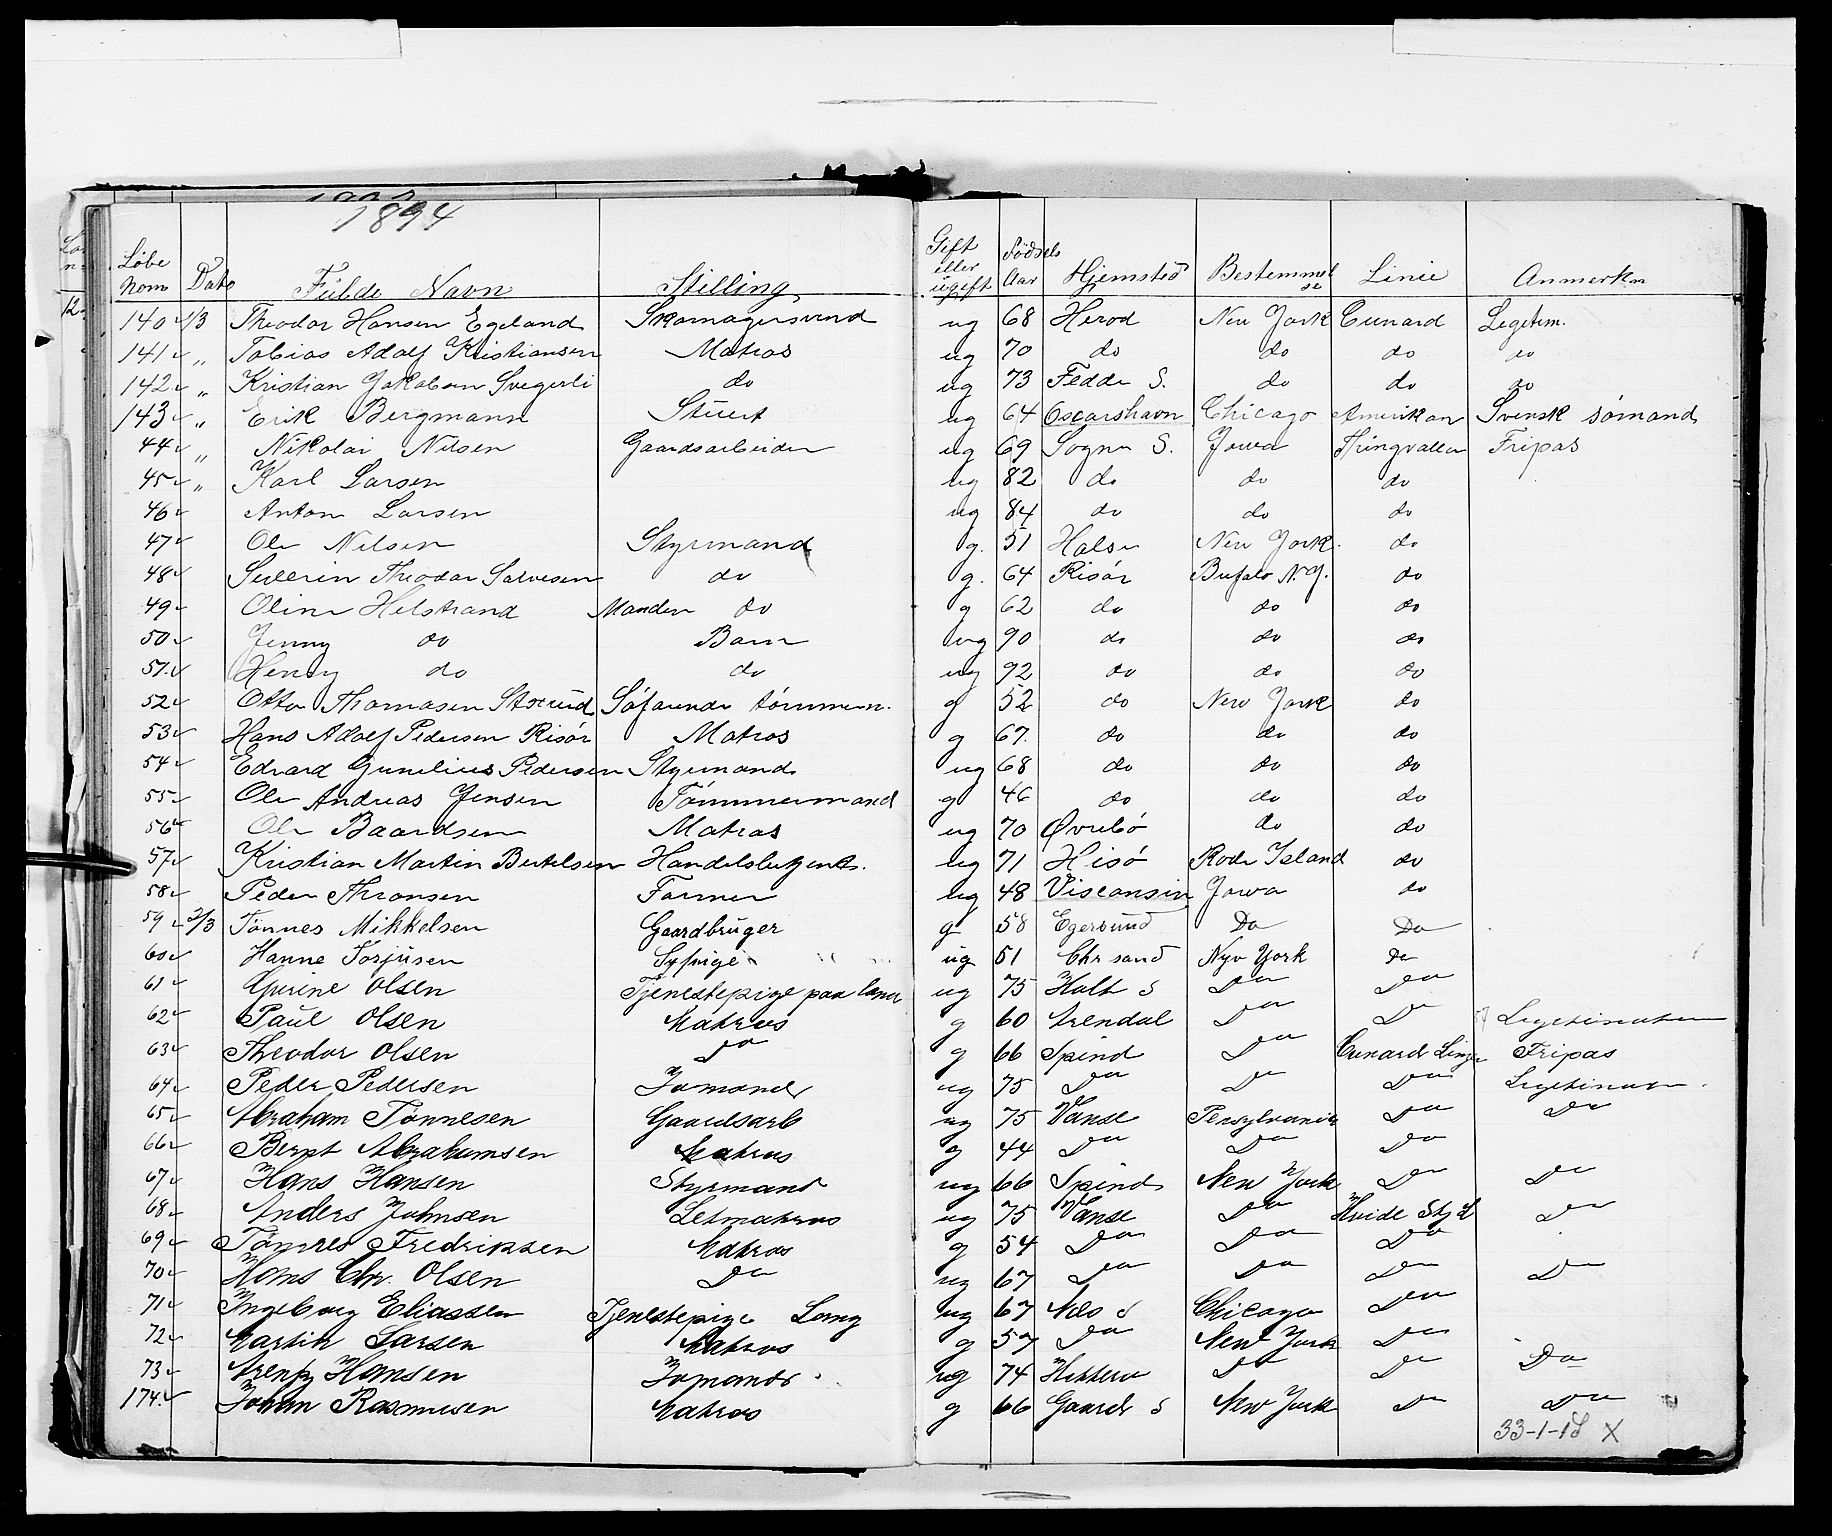 1894
Løbe Nom Dato Fulde Navn Stilling Gift eller ugift Fødsels Aar Hjemsted Bestemmelse Linie Anmerkn
140 1/3 Theodor Hansen Egeland Skomagersvend ug 68 Herod New York Cunard Legitim.
141 " Tobias Adolf Kristiansen Matros ug 70 do do do do
142 " Kristian Jakobsen Svegerli do ug 73 Fedde S. do do do
143 " Erik Bergmann Stuert ug 64 Oscarshavn Chicago Amerikan Svensk sømand
44 " Nikolai Nilsen Gaardsarbeider ug 69 Sogne S. Jowa Thingvalla Fripas
45 " Karl Larsen ug 82 do do do
46 Anton Larsen ug 84 do do do
47 Ole Nilsen Styrmand g. 51 Halse New York. do
48 Severin Theodor Salvesen do g. 64 Risør Bufalo N.Y. do
49 Oline Helstrand Manden do g 62 do do do
50 Jenny do Barn ug 90 do do do
51. Henry do do ug 92 do do do
52 Otto Thomasen Søfarende tømmerm. g 52 do New York do
53 Hans Adolf Pedersen Risør Matros g 67. do do do
54 Edvard Gunelius Pedersen Styrmand ug 68 do do do
55 Ole Andreas Jensen Tømmermand g 46 do do do
56 Ole Baardsen Matros ug 70 Øvrebø do do
57 Kristian Martin Bertelsen ug 71 Hisø Rode Island do
58 Peder Thronsen Farmer ug 48 Visconsin Jowa do
59 2/3 Tønnes Mikkelsen Gaardbruger g 58 Egersund Do Do
60 Hanne Torjusen Sypige ug 51 Chrsand Nyv York Do
61 Gurine Olsen Tjenestepige paa land ug 75 Holt S Do Do
62 Paul Olsen Matros g 60 Arendal Do Do Legitimation
63 Theodor Olsen Do g 66 Spind Do Cunard Linje Fripas
64 Peder Pedersen Jomand ug 75 Do Do Do Legitimation
65 Abraham Tønnesen Gaardsarb ug 75 Vanse Pensylvania Do Do
66 Bernt Abrahamsen Matros g 44 Do Do Do
67 Hans Hansen Styrmand ug 66 Spind New York Do Do
68 Anders Johnsen Letmatros ug 75 Vanse Do Hvide Stj L Do
69 Tønnes Fredriksen Matros g 54 Do Do Do
70 Hans Chr. Olsen Do ug 67 Do Do Do Do
71 Ingeborg Eliassen Tjenestepige Lang ug 67 Næs S Chicago Do
72 Martin Larsen Matros g 57 Do New York Do
73 Arent Hansen Jomand ug 74 Hitterø Do Do Do
174. Johan Rasmusen Matros g 66 Gaards S New York Do Do
33-1-18 X